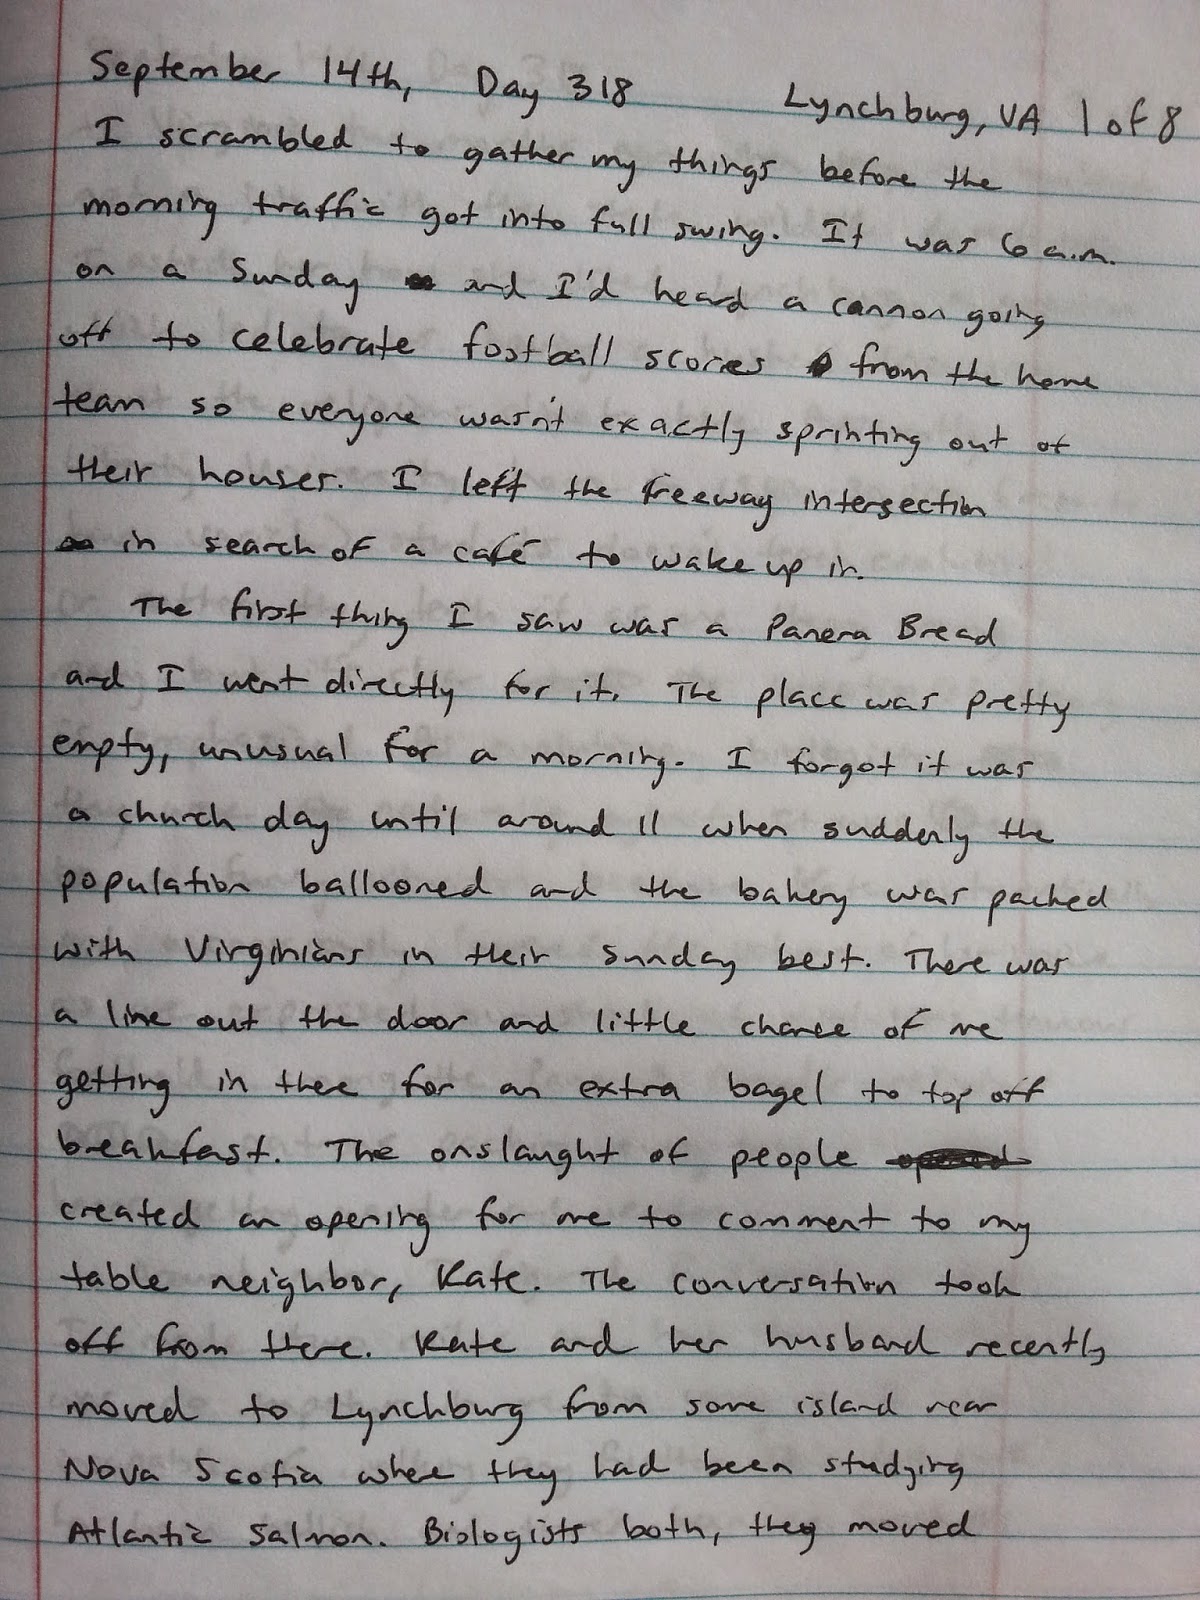 September 14th, Day 318 Lynchburg, VA 1 of 8
I scrambled to gather my things before the
morning traffic got into full swing. It was 6 a.m.
on a Sunday and I'd heard a cannon going
off to celebrate football scores from the home
team so everyone wasn't exactly sprinting out of
their houses. I left the freeway intersection
in search of a café to wake up in.
The first thing I saw was a Panera Bread
and I went directly for it. The place was pretty
empty, unusual for a morning. I forgot it was
a church day until around 11 when suddenly the
population ballooned and the bakery was packed
with Virginians in their Sunday best. There was
a line out the door and little chance of me
getting in there for an extra bagel to top off
breakfast. The onslaught of people
created an opening for me to comment to my
table neighbor, Kate. The conversation took
off from there. Kate and her husband recently
moved to Lynchburg from some island near
Nova Scotia where they had been studying
Atlantic Salmon. Biologists both, they moved